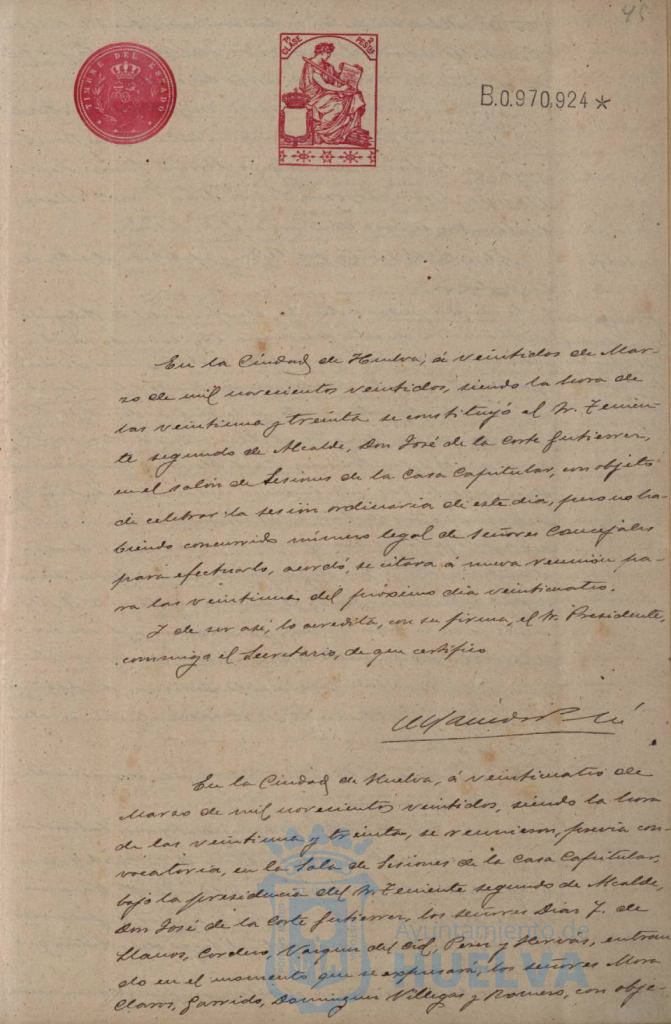 45
TIMBRE DEL ESTADO
7ª CLASE
2 PESETAS
B.0.970,924*
En la Ciudad de Huelva, á veintidos de Mar-
zo de mil novecientos veintidos, siendo la hora de
las veintiuna y treinta se constituyó el Sr. Tenien-
te segundo de Alcalde, Don José de la Corte Gutierrez,
en el salón de Sesiones de la Casa Capitular, con objeto
de celebrar la sesión ordinaria de este dia, pero no ha-
biendo concurrido número legal de señores Concejales
para efectuarlo, acordó, se citara á nueva reunión pa-
ra las veintiuna del próximo dia veinticuatro.
Y de ser asi, lo acredita, con su firma, el Sr. Presidente,
conmigo el Secretario, de que certifico
En la Ciudad de Huelva, á veinticuatro de
Marzo de mil novecientos veintidos, siendo la hora
de las veintiuna y treinta, se reunieron, previa con-
vocatoria, en la Sala de Sesiones de la Casa Capitular,
bajo la presidencia del Sr. Teniente segundo de Alcalde,
Don José de la Corte Gutierrez, los señores Diaz F. de
Llanos, Cordero, Vazquez del Cid, Perez y Hervas, entran
do en el momento que se expresará, los señores Mora
Claros, Garrido, Dominguez Villegas y Romero, con obje-
Ayuntamiento de
HUELVA